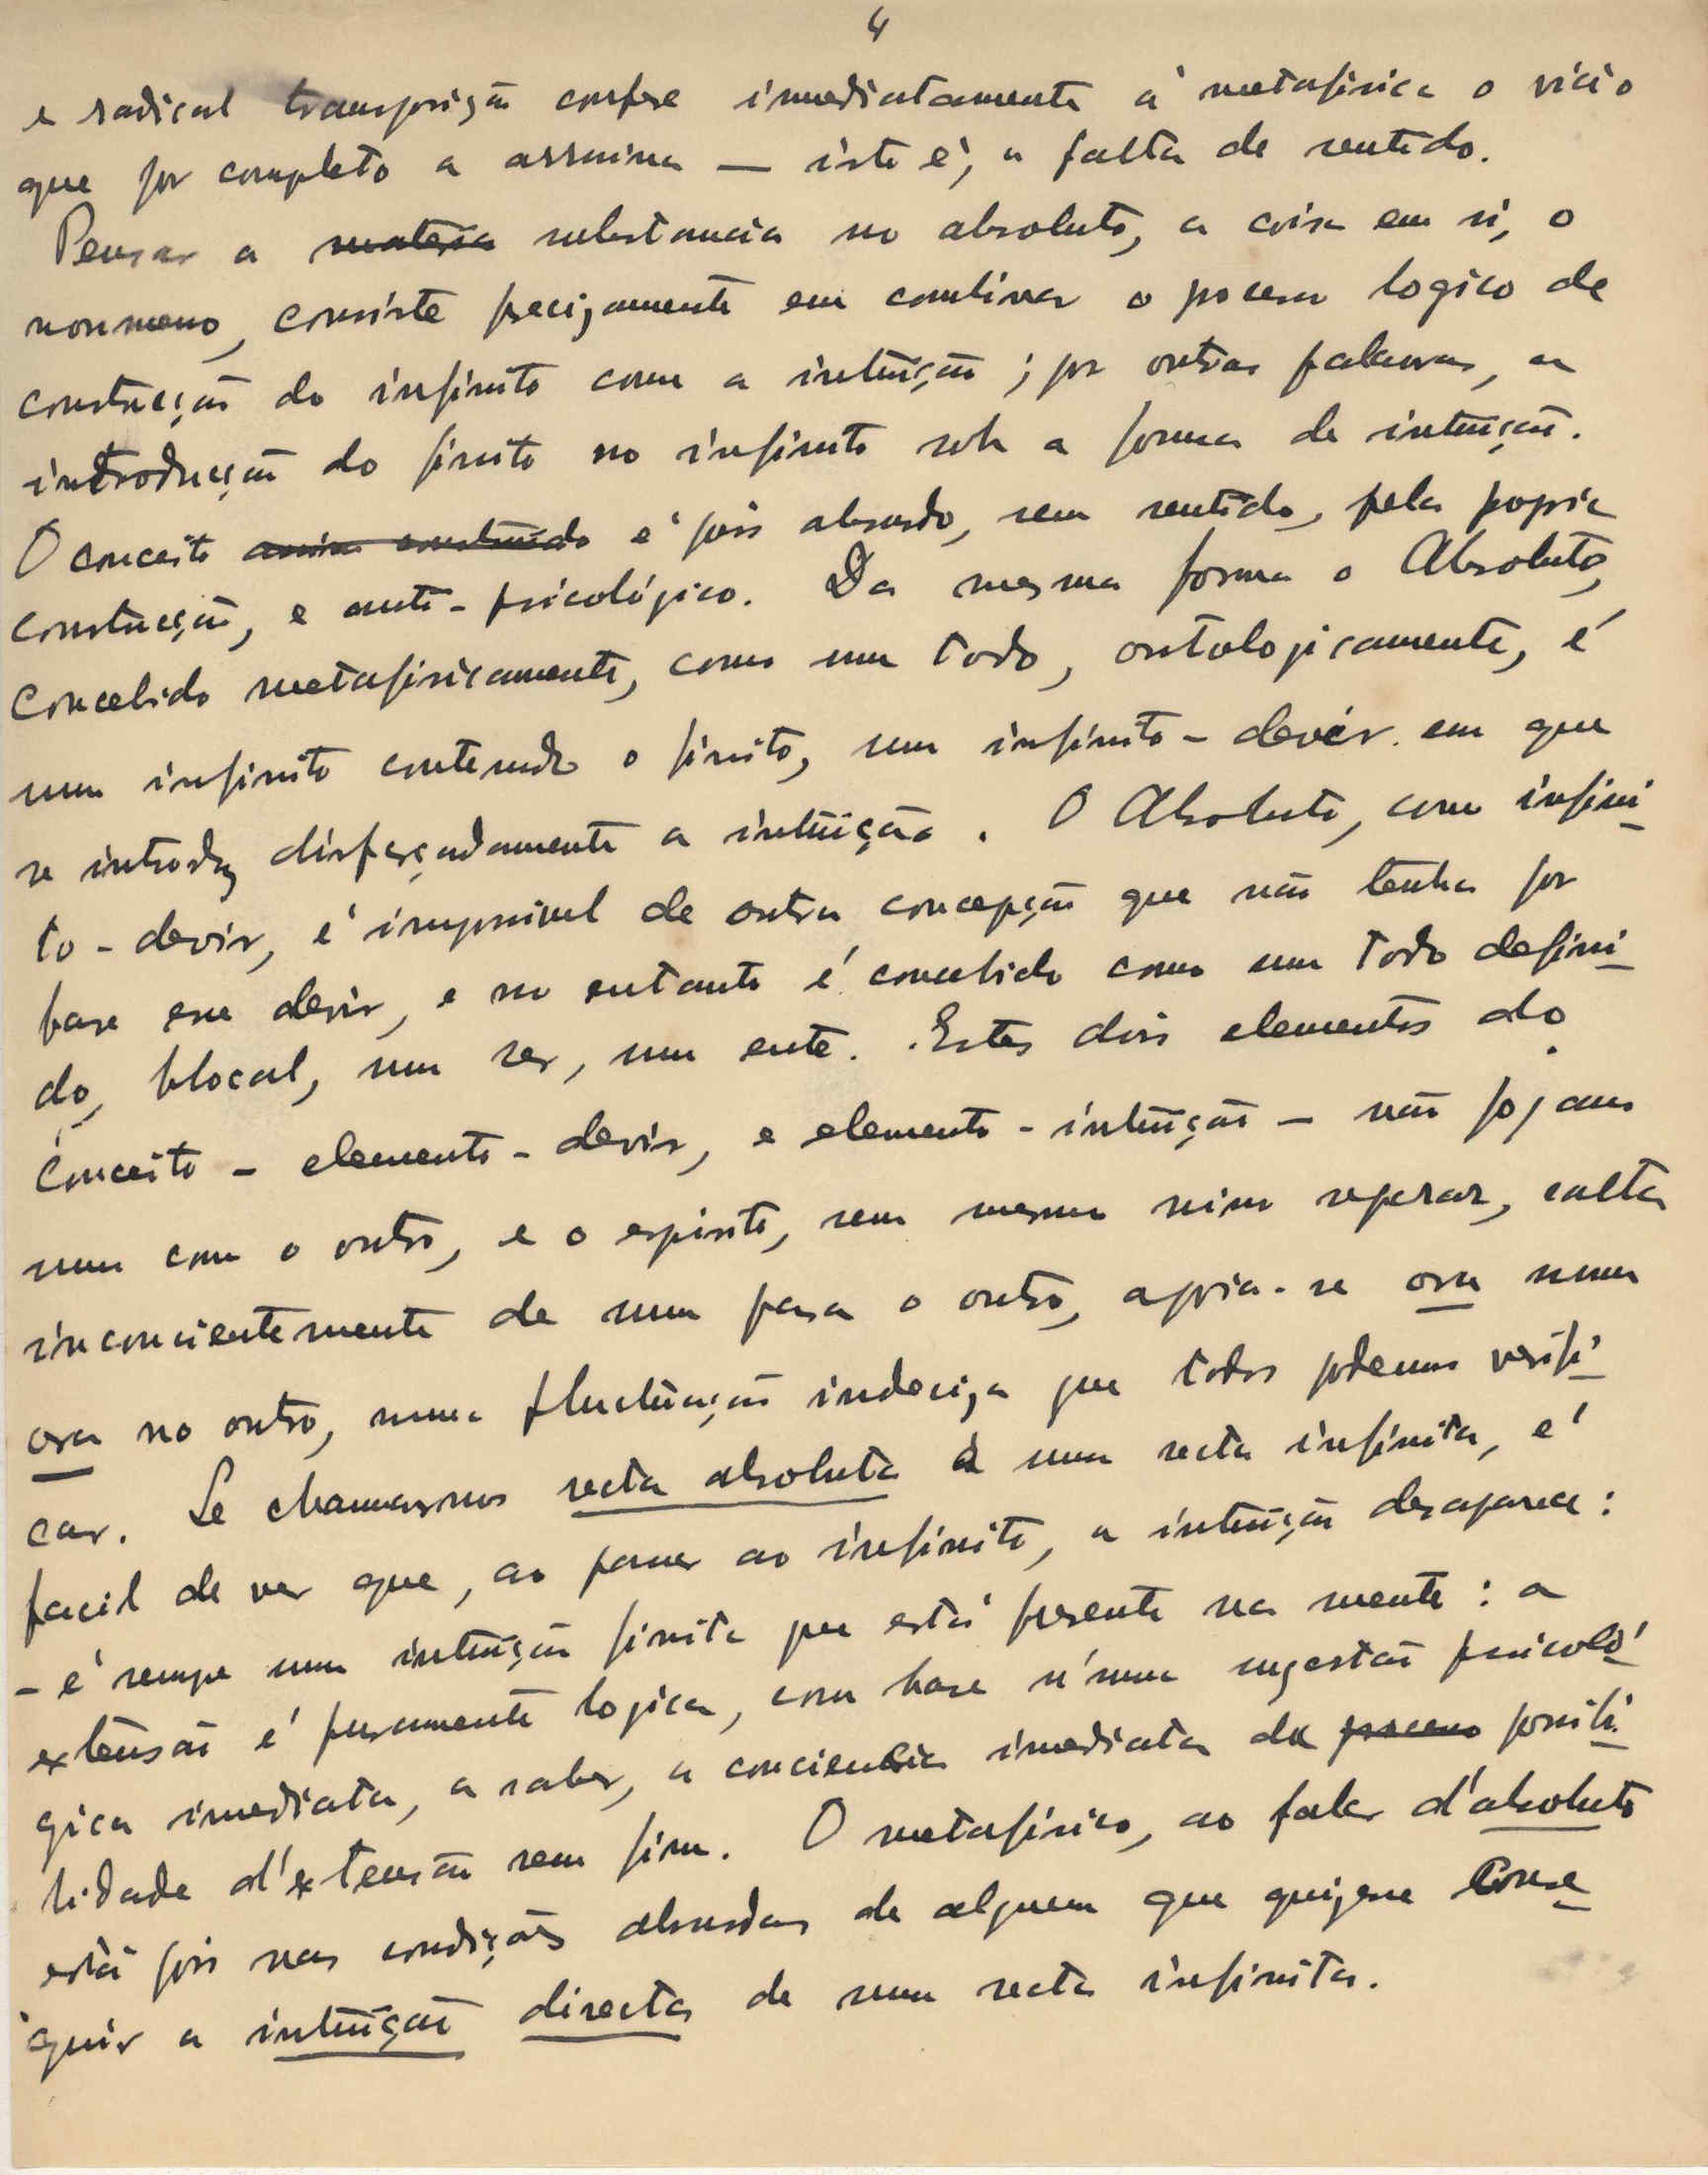 4
e radical transposição confere immediatamente á metafisica o vicio
que por completo a assassina — isto é, a falta de sentido.
Pensar a materia substancia no absoluto, a coisa em si, o
noumeno, consiste precisamente em combinar o processo logico de
construcção do infinito com a intuição; por outras palavras, a
introducção do finito no infinito sob a forma de intuição.
O conceito assim construido é pois absurdo, sem sentido, pela propria
construcção, e anti-psicológico. Da mesma forma o Absoluto,
concebido metafisicamente, como um todo, ontologicamente, é
um infinito contendo o finito, um infinito-devir em que
se introduz disfarçadamente a intuição. O Absoluto, como infini-
to-devir, é impossivel de outra concepção que não tenha por
base esse devir, e no entanto é concebido como um todo defini-
do, blocal, um ser, um ente. Estes dois elementos do
conceito - elemento-devir, e elemento-intuição - não jogam
um com o outro, e o espirito, sem mesmo nisso reparar, salta
inconcientemente de um para o outro, apoia-se ora num
ora no outro, numa fluctuação indeciza que todos podemos verifi-
car. Se chamarmos recta absoluta a uma recta infinita, é
facil de ver que, ao passar ao infinito, a intuição desaparece:
- é sempre uma intuição finita que está presente na mente: a
extensão é puramente logica, com base n'uma sugestão psicoló-
gica imediata, a saber, a conciencia imediata da processo possibi-
lidade d'extensão sem fim. O metafisico, ao falar d'absoluto
está pois nas condições absurdas de alguem que quizesse conse-
guir a intuição directa de uma recta infinita.